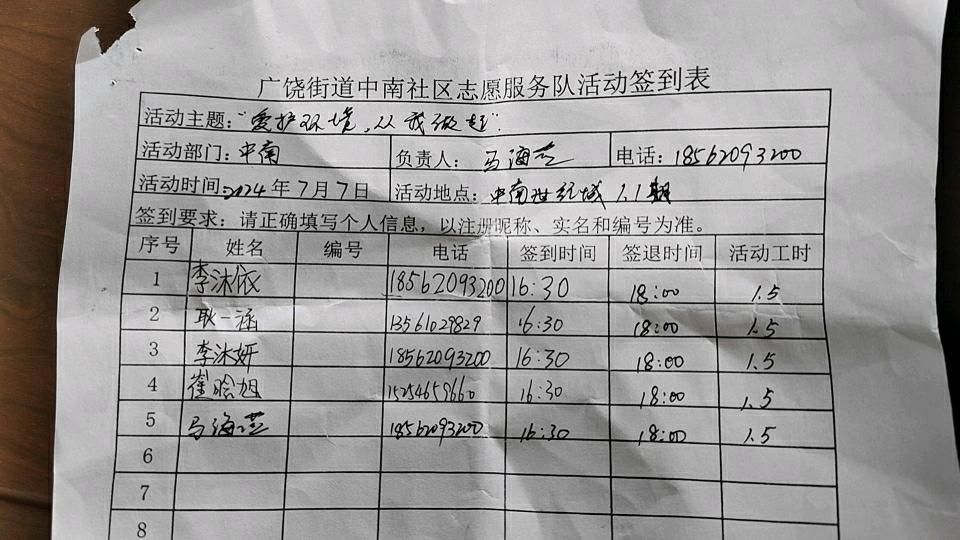 广饶街道中南社区志愿服务队活动签到表
活动主题:“爱护环境,从我做起”
活动部门:中南 负责人: 马海燕 电话: 18562093200
活动时间:2024年7月7日 活动地点: 中南世纪城1.1期
签到要求:请正确填写个人信息,以注册昵称、实名和编号为准。
序号 姓名 编号 电话 签到时间 签退时间 活动工时
1 李沐依 18562093200 16:30 18:00 1.5
2 耿一涵 13561029829 16:30 18:00 1.5
3 李沐妍 18562093200 16:30 18:00 1.5
4 崔晗旭 15254659660 16:30 18:00 1.5
5 马海燕 18562093200 16:30 18:00 1.5
6
7
8